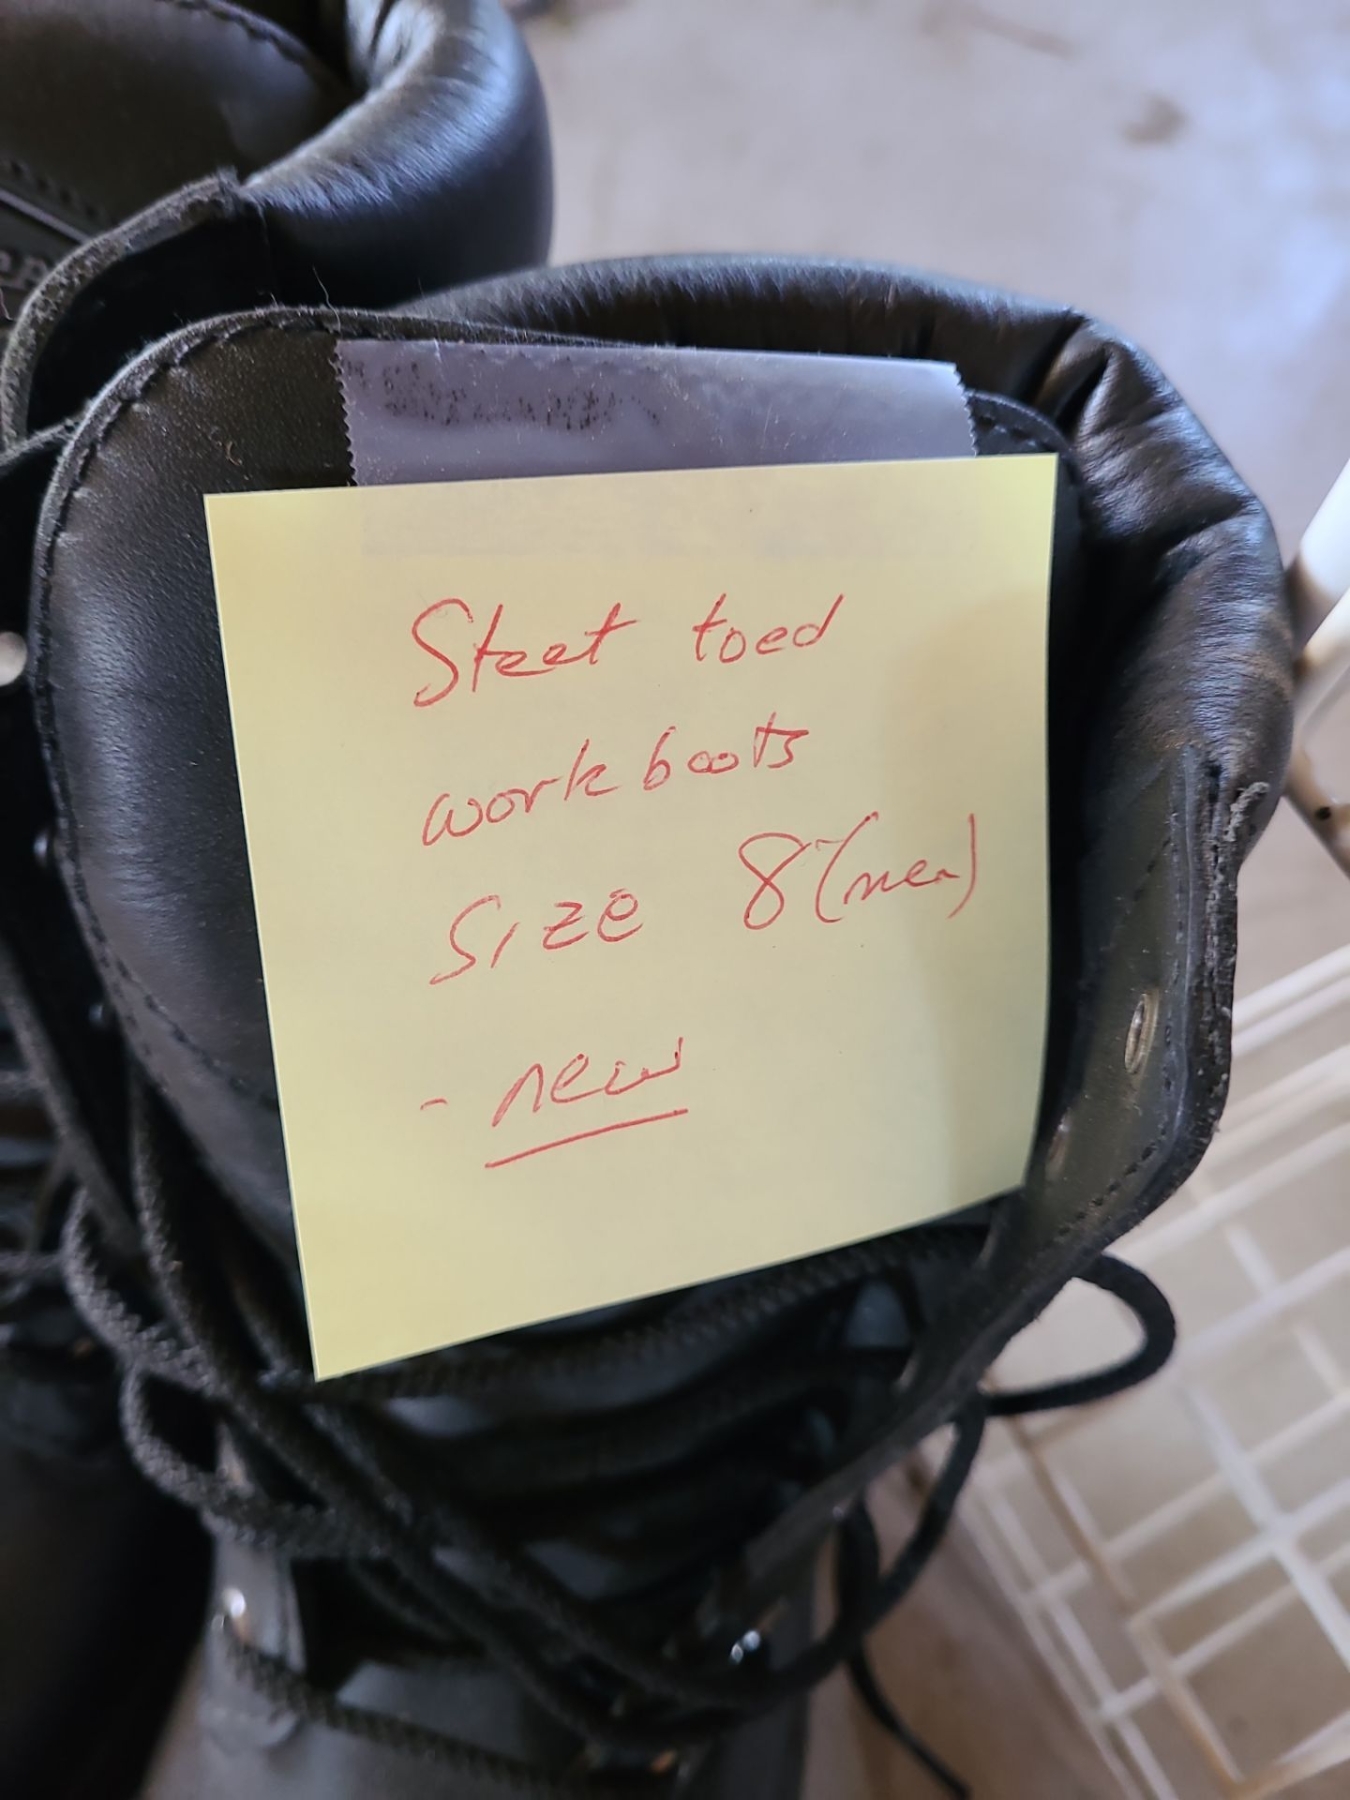 Steet toed
work boots
SIZE 8 (men)
- new